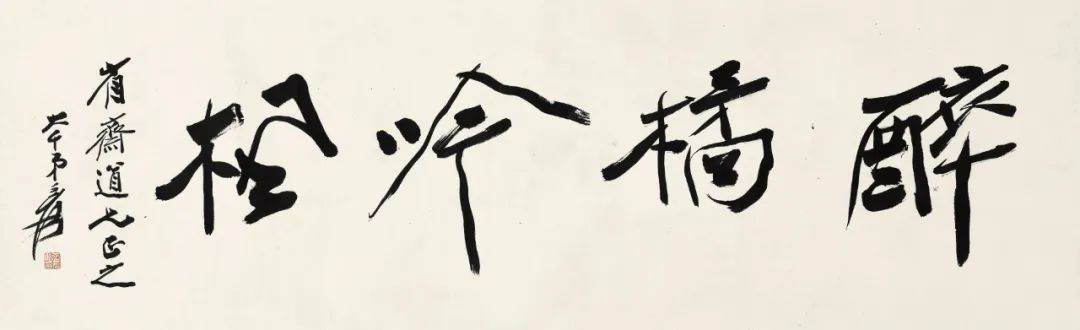 醉橘吟楓
省齋道兄正之
大千弟爰